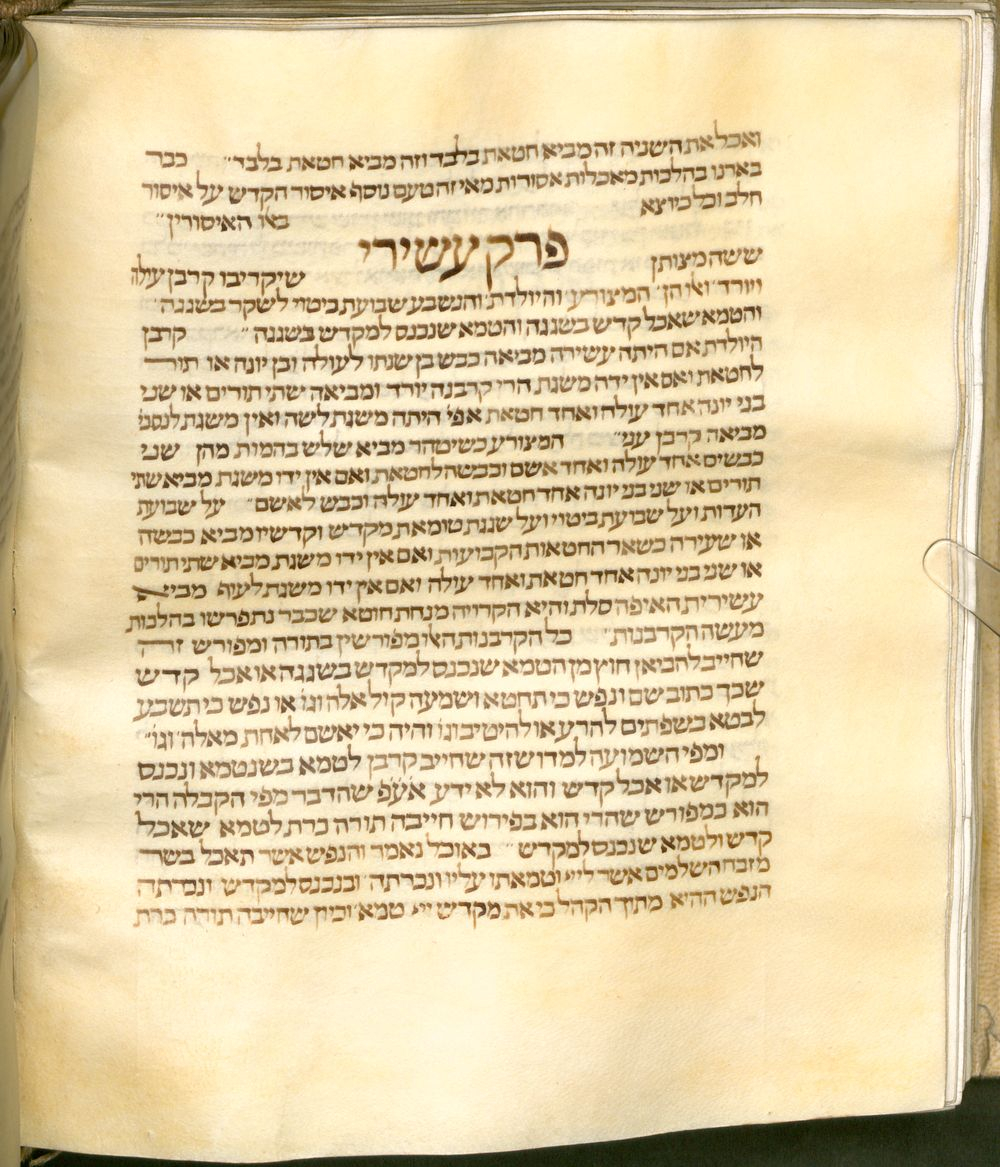 ואכל את השניה זה מביא חטאת בלבד וזה מביא חטאת בלבד״ כבר
בארנו בהלכות מאכלות אסורות מאי זה טעם נוסף איסור הקדש על איסור
חלב וכל כיוצא
באו האיסורין״
פרק עשירי
ששה מצותן שיקריבו קרבן עולה
ויורד ואו הן המצורע והיולדת והנשבע שבועת ביטוי לשקר בשגגה
והטמא שאכל קדש בשגגה והטמא שנכנס למקדש בשגגה״ קרבן
היולדת אם היתה עשירה מביאה כבש בן שנתו לעולה ובן יונה או תור
לחטאת ואם אין ידה משגת הרי קרבנה יורד ומביאה שתי תורים או שני
בני יונה אחד עולה ואחד חטאת אפי׳ היתה משגת לשה ואין משגת לנסכי
מביאה קרבן עני״ המצורע כשיטהר מביא שלש בהמות מהן שני
כבשים אחד עולה ואחד אשם וכבשה לחטאת ואם אין ידו משגת מביא שתי
תורים או שני בני יונה אחד חטאת ואחד עולה וכבש לאשם״ על שבועת
העדות ועל שבועת ביטוי ועל שגגת טומאת מקדש וקדשיו מביא כבשה
או שעירה כשאר החטאות הקבועות ואם אין ידו משגת מביא שתי תורים
או שני בני יונה אחד חטאת ואחד עולה ואם אין ידו משגת לעוף מביא
עשירית האיפה סלת והיא הקרויה מנחת חוטא שכבר נתפרשו בהלכות
מעשה הקרבנות״ כל הקרבנות האו מפורשין בתורה ומפורש זה
שחייב להביאן חוץ מן הטמא שנכנס למקדש בשגגה או אכל קדש
שכך כתוב שם ונפש כי תחטא ושמעה קול אלה וגו׳ או נפש כי תשבע
לבטא בשפתים להרע או להיטיב וגו׳ והיה כי יאשם לאחת מאלה וגו״
ומפי השמועה למדו שזה שחייב קרבן לטמא בשנטמא ונכנס
למקדש או אכל קדש והוא לא ידע אעפ שהדבר מפי הקבלה הרי
הוא כמפורש שהרי הוא בפירוש חייבה תורה כרת לטמא שאכל
קדש ולטמא שנכנס למקדש״ באוכל נאמר והנפש אשר תאכל בשר
מזבח השלמים אשר לייי וטמאתו עליו ונכרתה ובנכנס למקדש ונכרתה
הנפש ההיא מתוך הקהל כי את מקדש ייי טמא וכיון שחייבה תורה כרת